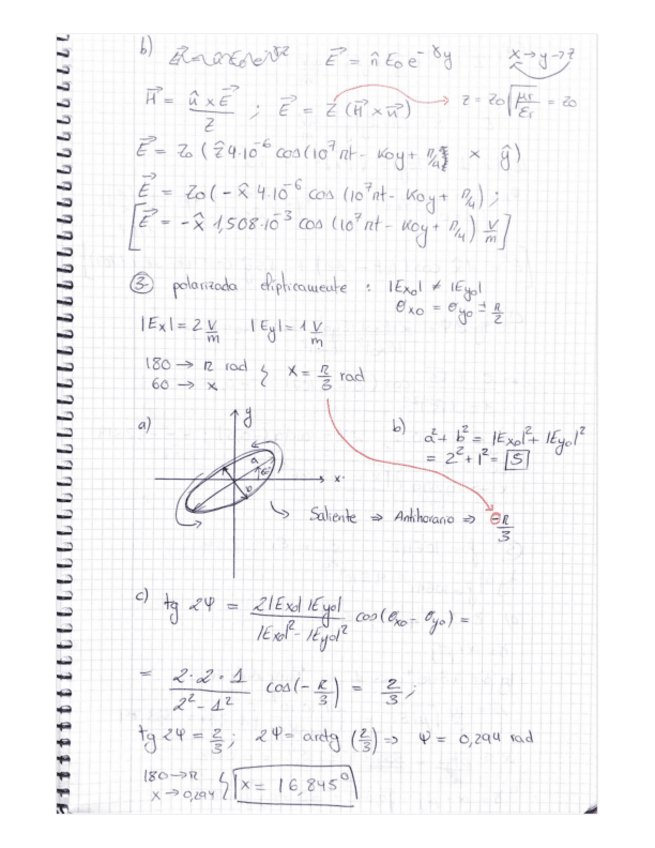 b) E⃗ = n̂ E₀ e^-γy x → y → z
H⃗ = (n̂ x E⃗)/Z ; E⃗ = Z (H⃗ x n⃗) → Z = Z₀ √(μr/εr) = Z₀
E⃗ = Z₀ ( ẑ 4·10⁻⁶ cos(10⁷ πt - K₀y + π/4) x ŷ )
E⃗ = Z₀ (- x̂ 4·10⁻⁶ cos (10⁷ πt - K₀y + π/4) ;
[E⃗ = - x̂ 1,508·10⁻³ cos (10⁷ πt - K₀y + π/4) V/m]
③- polarizada elípticamente : |Ex₀| ≠ |Ey₀|
θx₀ = θy₀ ± π/2
|Ex| = 2 V/m |Ey| = 1 V/m
180 → π rad
60 → x } x = π/3 rad
a) y
a 60
b x
b) a² + b² = |Ex₀|² + |Ey₀|²
= 2² + 1² = 5
↳ Saliente ⇒ Antihorario ⇒ ⊖ π/3
c) tg 2Ψ = (2|Ex₀| |Ey₀|)/(|Ex₀|² - |Ey₀|²) cos (θx₀ - θy₀) =
= (2·2·1)/(2² - 1²) cos (- π/3) = 2/3 ;
tg 2Ψ = 2/3 ; 2Ψ = arctg (2/3) => Ψ = 0,294 rad
180 → π
x → 0,294 } x = 16,845°